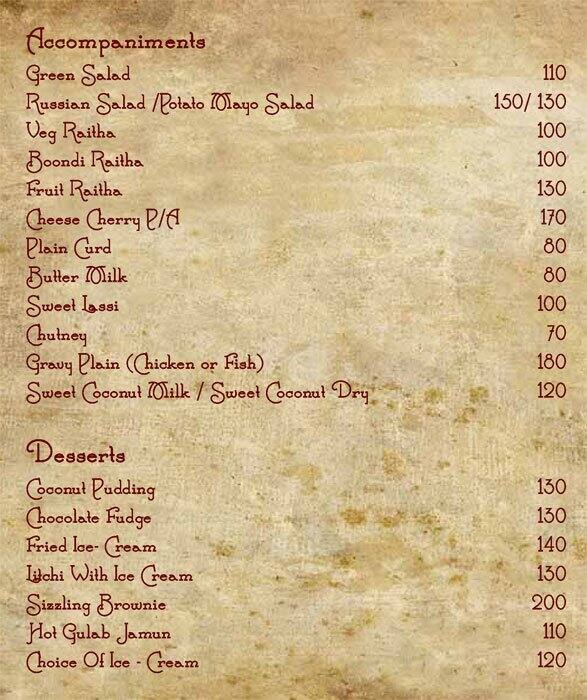 Accompaniments
Green Salad 110
Russian Salad /Potato Mayo Salad 150/ 130
Veg Raitha 100
Boondi Raitha 100
Fruit Raitha 130
Cheese Cherry P/A 170
Plain Curd 80
Butter Milk 80
Sweet Lassi 100
Chutney 70
Gravy Plain (Chicken or Fish) 180
Sweet Coconut Milk / Sweet Coconut Dry 120
Desserts
Coconut Pudding 130
Chocolate Fudge 130
Fried Ice- Cream 140
Litchi With Ice Cream 130
Sizzling Brownie 200
Hot Gulab Jamun 110
Choice Of Ice - Cream 120